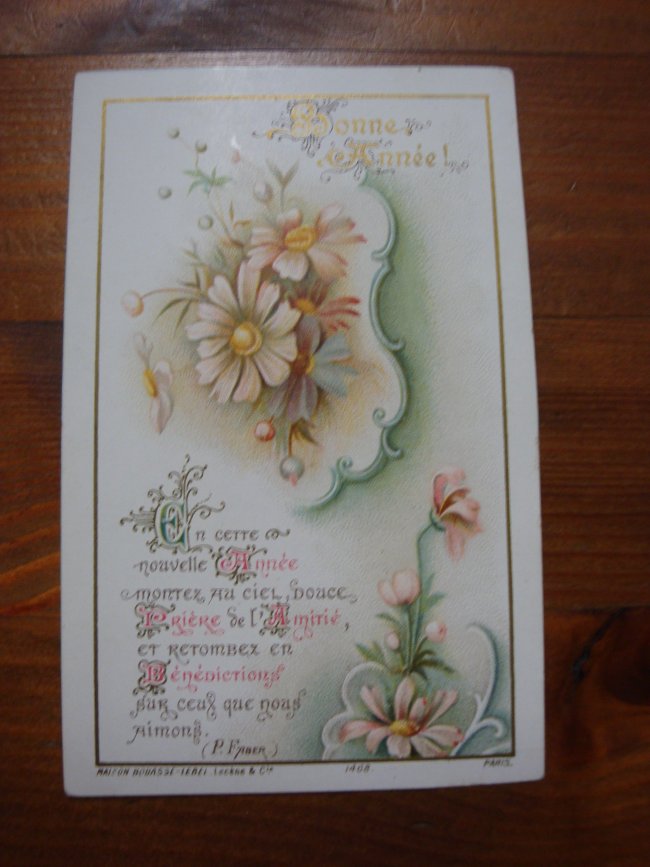 Bonne
Année!
En cette
nouvelle Année
montez au ciel, douce
Prière de l'Amitié,
et retombez en
Bénédictions
sur ceux que nous
aimons.
(P. Faber)
MAISON BOUASSE-LEBEL Lecène & Cie 1408. PARIS.